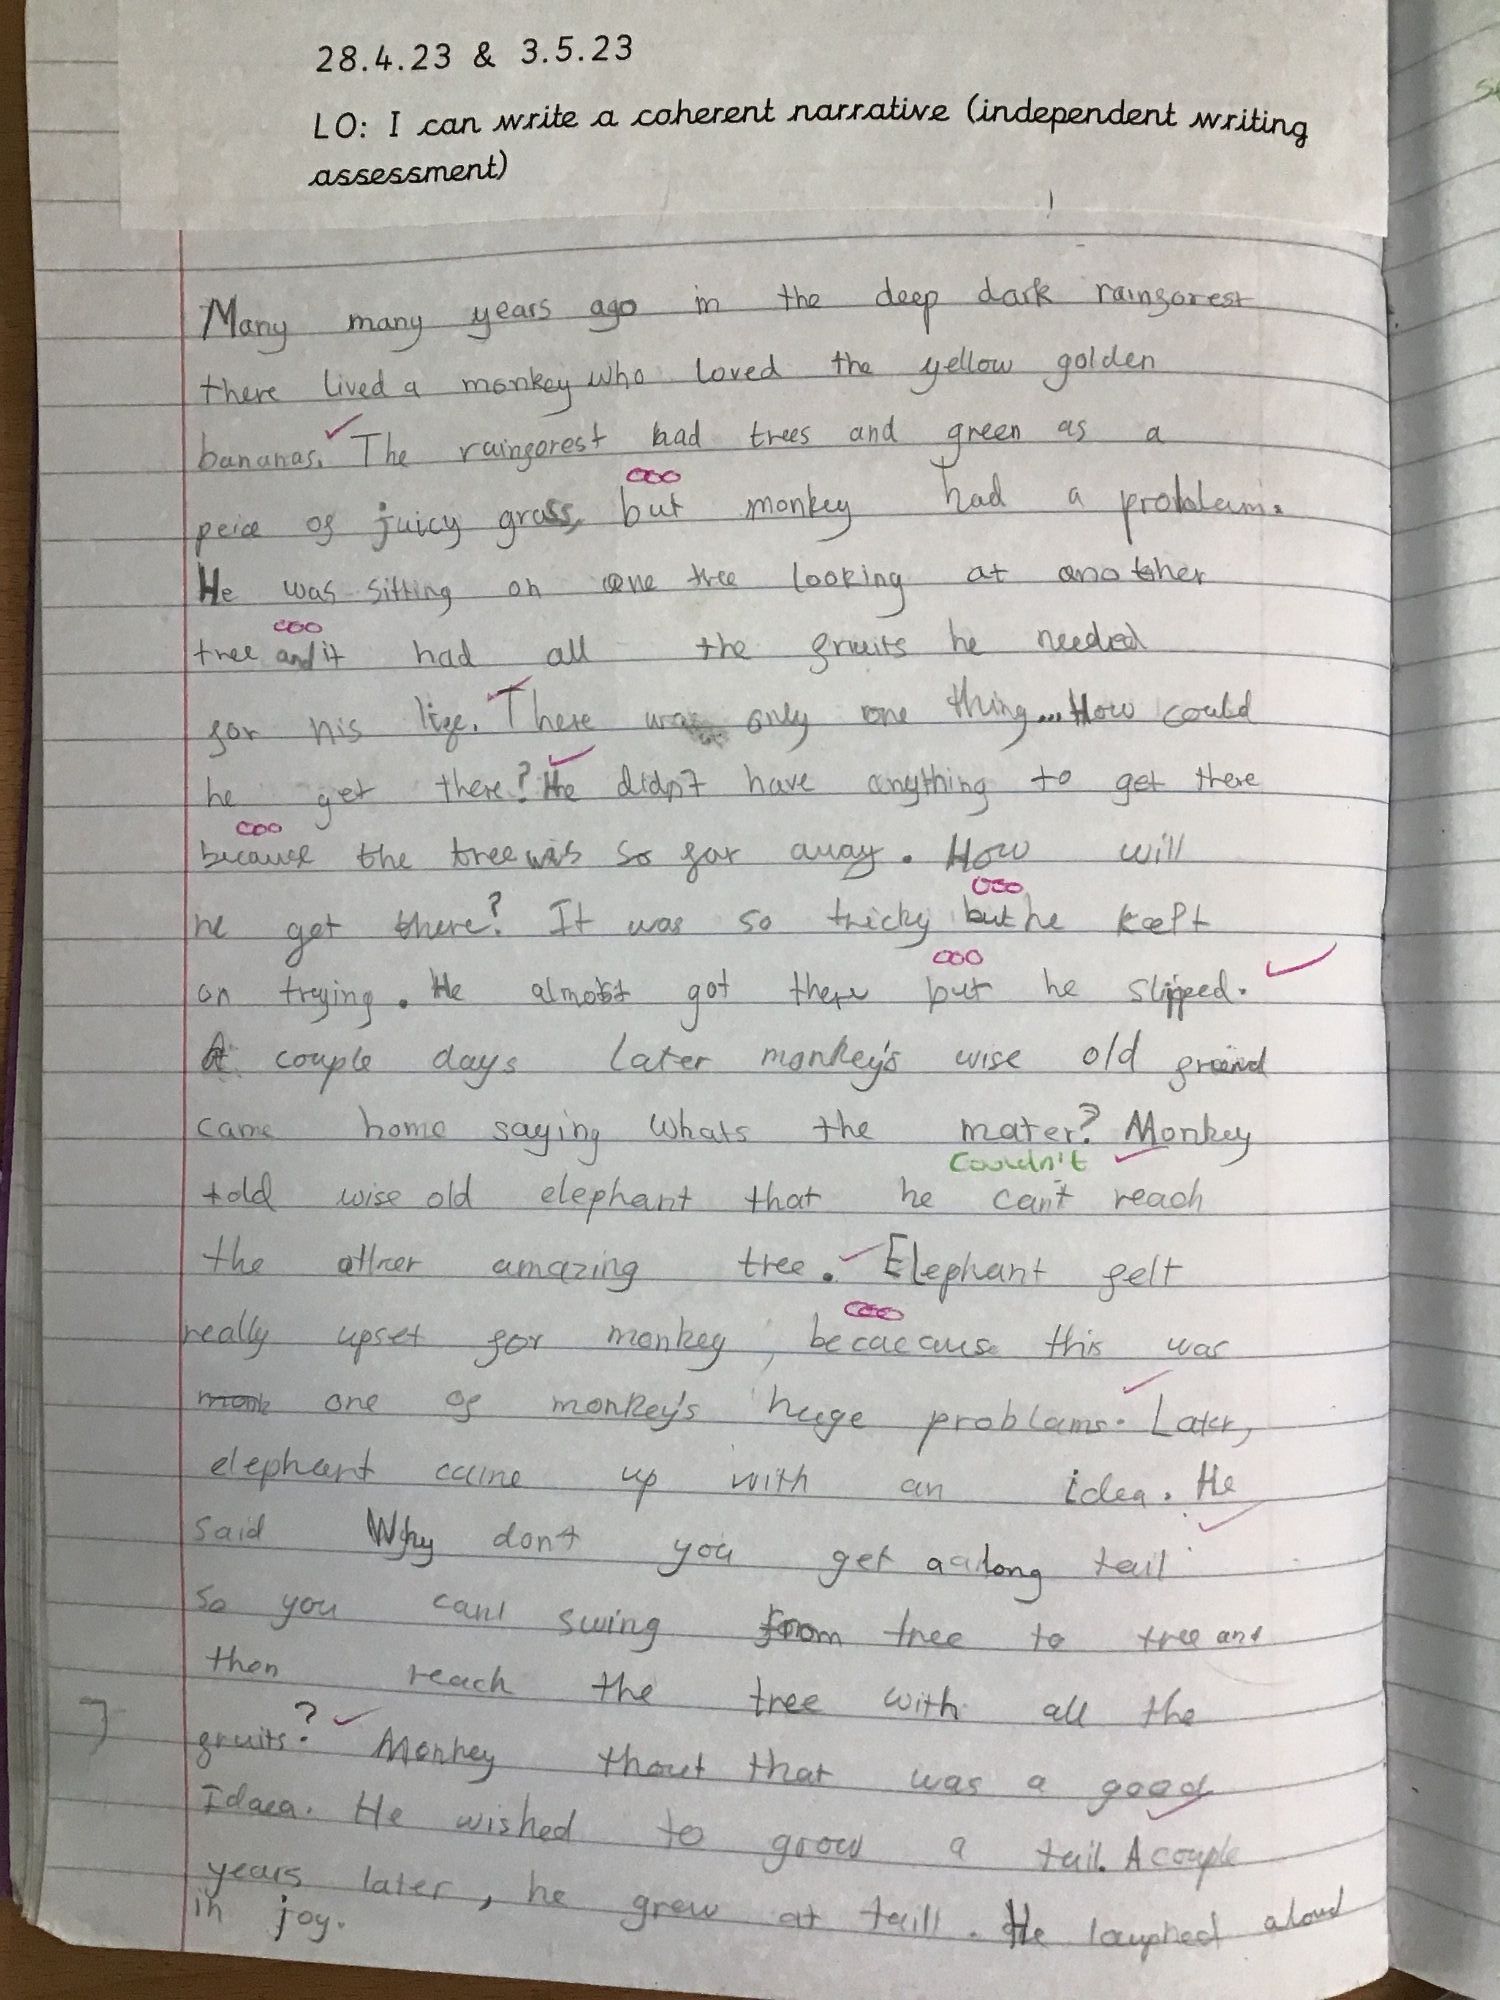 28.4.23 & 3.5.23
LO: I can write a coherent narrative (independent writing
assessment)
Many many years ago in the deep dark rainforest
there lived a monkey who loved the yellow golden
bananas. The rainforest had trees and green as a
peice of juicy grass, but monkey had a problem.
He was sitting on one tree looking at another
tree and it had all the fruits he needed
for his life. There was only one thing... How could
he get there? He didn't have anything to get there
because the tree was so far away. How will
he get there? It was so tricky but he kept
on trying. He almost got there but he slipped.
A couple days later monkey's wise old friend
came home saying whats the mater? Monkey
couldn't
told wise old elephant that he can't reach
the other amazing tree. Elephant felt
really upset for monkey, becacause this was
monk one of monkey's huge problams. Later,
elephant came up with an idea. He
said Why don't you get a long tail
so you can swing from tree to tree and
then reach the tree with all the
fruits? Monkey thout that was a good
Idaea. He wished to grow a tail. A couple
years later, he grew at taill. He laughed aloud
in joy.